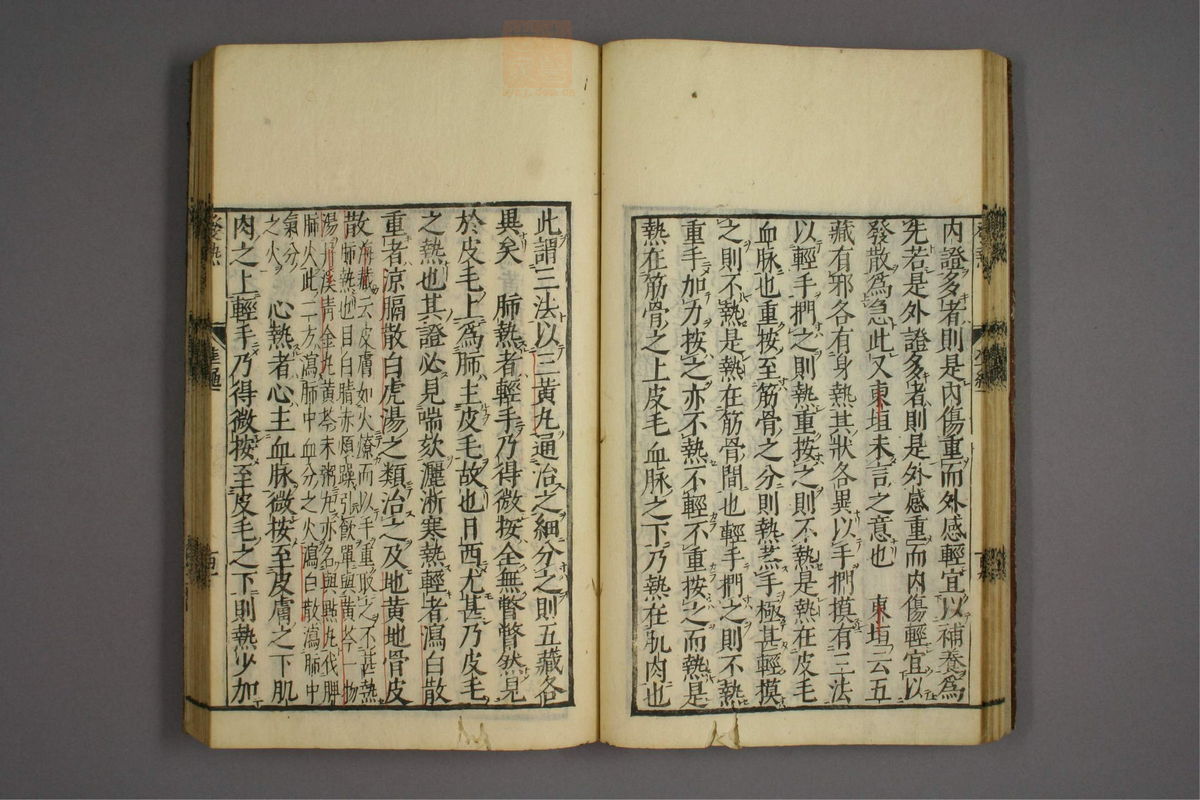 內證多者則是內傷重而外感輕宜以補養爲
先若是外證多者則是外感重而內傷輕宜以
發散爲急此又東垣未言之意也 東垣云五
藏有邪各有身熱其狀各異以手捫摸有三法
以輕手捫之則熱重按之則不熱是熱在皮毛
血脉也重按至筋骨之分則熱蒸手極甚輕摸
之則不熱是熱在筋骨間也輕手捫之則不熱
重手加力按之亦不熱不輕不重按之而熱是
熱在筋骨之上皮毛血脉之下乃熱在肌肉也
此謂三法以三黃丸通治之細分之則五藏各
異矣 肺熱者輕手乃得微按全無瞥瞥然見
於皮毛上爲肺主皮毛故也日西尤甚乃皮毛
之熱也其證必見喘欬灑淅寒熱輕者瀉白散
重者凉膈散白虎湯之類治之及地黃地骨皮
散海藏云皮膚如火燎而以手重取之不甚熱
肺熱也目白睛赤煩躁引飲單與黃芩一物
湯丹溪青金丸黃芩末粥丸亦名與點丸伐脾
肺火此二方瀉肺中血分之火瀉白散瀉肺中
氣分
之火 心熱者心主血脉微按至皮膚之下肌
肉之上輕手乃得微按至皮毛之下則熱少加
發熱
準繩